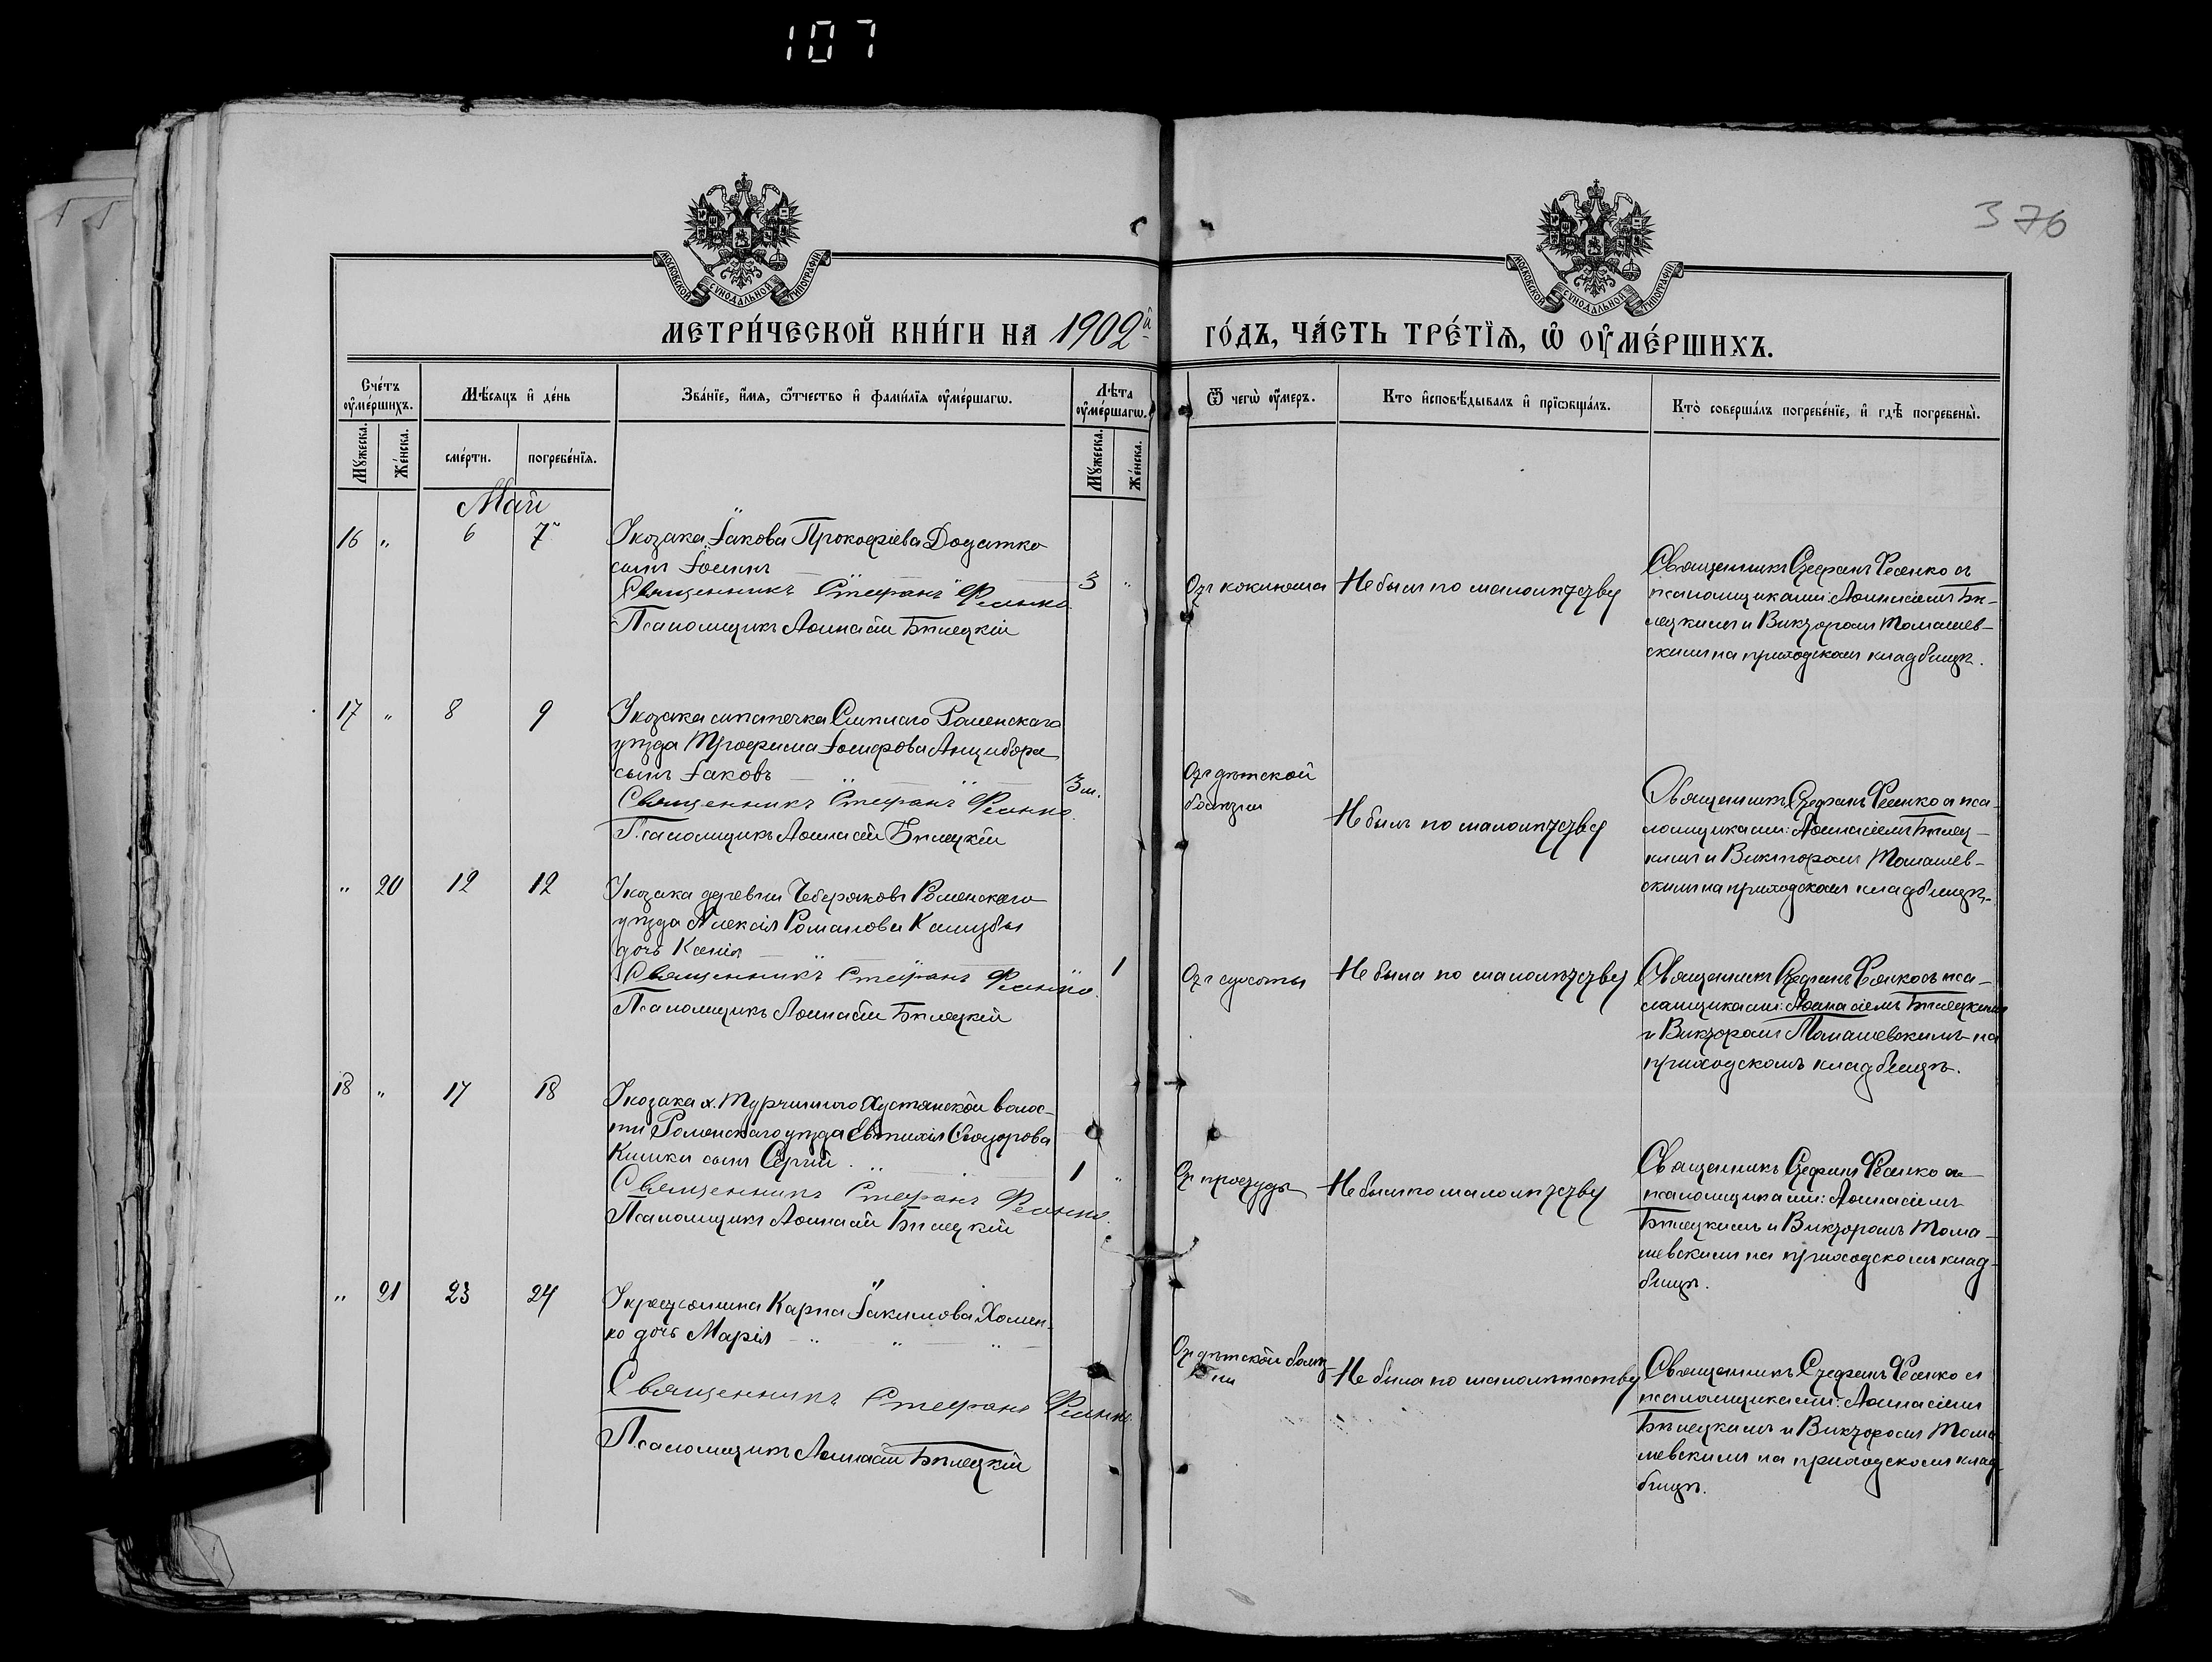 107
376
МОСКОВСКОЙ СѴНОДАЛЬНОЙ ТИПОГРАФІИ
МОСКОВСКОЙ СѴНОДАЛЬНОЙ ТИПОГРАФІИ
МЕТРИ́ЧЕСКОЙ КНИ́ГИ НА 1902й ГО́ДЪ, ЧА́СТЬ ТРЕ́ТІѦ, Ѡ҆ ОУ҆МЕ́РШИХЪ.
Сче́тъ оу҆ме́ршихъ.
Мѣ́сяцъ и҆ де́нь
Зва́нїе, и҆́мя, ѻ҆́тчество и҆ фами́лїя оу҆ме́ршагѡ.
Лѣ́та оу҆ме́ршагѡ.
Ѿ чегѡ̀ оу҆́меръ.
Кто и҆сповѣ́дывалъ и҆ прїѡбща́лъ.
Кто̀ соверша́лъ погребе́нїе, и҆ гдѣ̀ погребены̀.
Мꙋ́жеска.
Же́нска.
сме́рти.
погребе́нїя.
Мꙋ́жеска.
Же́нска.
Май
16 " 6 7
Козака Іакова Прокофіева Додатко
сынъ Іоаннъ
Священникъ Стефанъ Фесенко
Псаломщикъ Аѳанасій Бѣлецкій
3 "
Отъ коклюша
Не былъ по малолѣтству
Священникъ Стефанъ Фесенко съ
псаломщиками: Аѳанасіемъ Бѣ-
лецкимъ и Викторомъ Томашев-
скимъ на приходскомъ кладбищѣ.
17 " 8 9
Козака мѣстечка Смѣлаго Роменскаго
уѣзда Трофима Іосифова Анцибора
сынъ Іаковъ
Священникъ Стефанъ Фесенко
Псаломщикъ Аѳанасій Бѣлецкій
3 м.
Отъ дѣтской
болѣзни
Не былъ по малолѣтству
Священникъ Стефанъ Фесенко съ пса-
ломщиками: Аѳанасіемъ Бѣлец-
кимъ и Викторомъ Томашев-
скимъ на приходскомъ кладбищѣ.
" 20 12 12
Козака деревни Чеберяковъ Роменскаго
уѣзда Алексія Романова
дочь Ксенія
Священникъ Стефанъ Фесенко
Псаломщикъ Аѳанасій Бѣлецкій
" 1
Отъ сухоты
Не была по малолѣтству
Священникъ Стефанъ Фесенко съ пса-
ломщиками: Аѳанасіемъ Бѣлецкимъ
и Викторомъ Томашевскимъ на
приходскомъ кладбищѣ.
18 " 17 18
Козака х. Хустянской волос-
ти Роменскаго уѣзда Евтихія Ѳеодорова
сынъ Сергій
Священникъ Стефанъ Фесенко
Псаломщикъ Аѳанасій Бѣлецкій
1 "
Отъ простуды
Не былъ по малолѣтству
Священникъ Стефанъ Фесенко съ
псаломщиками: Аѳанасіемъ
Бѣлецкимъ и Викторомъ Тома-
шевскимъ на приходскомъ клад-
бищѣ.
" 21 23 24
Карпа Іакимова Хомен-
ко дочь Марія
Священникъ Стефанъ Фесенко
Псаломщикъ Аѳанасій Бѣлецкій
Отъ дѣтской болѣз-
ни
Не была по малолѣтству
Священникъ Стефанъ Фесенко съ
псаломщиками: Аѳанасіемъ
Бѣлецкимъ и Викторомъ Тома-
шевскимъ на приходскомъ клад-
бищѣ.